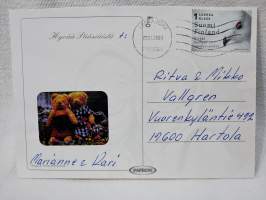 Hyvää Pääsiäistä
1 LUOKKA KLASS
Suomi
Finland
Ritva & Mikko
Vallgren
Vuorenkyläntie 492
19600 Hartola
Marianne & Kari